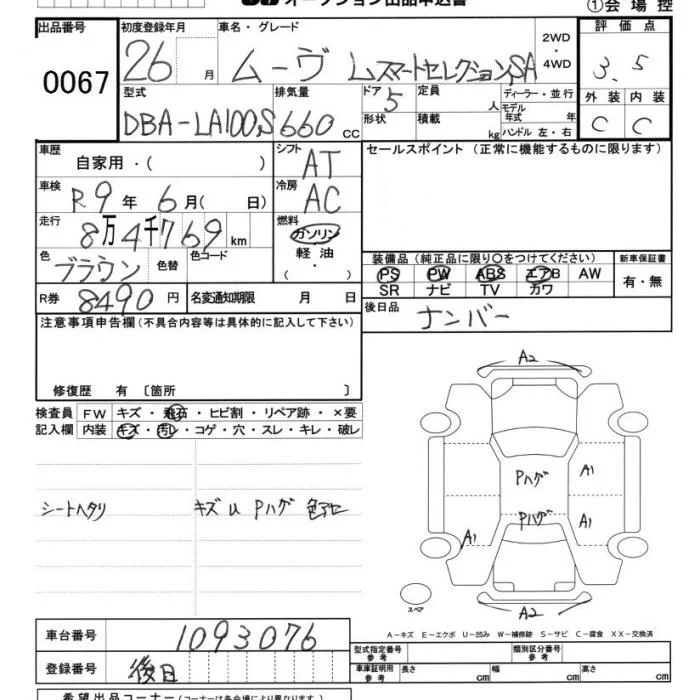 オークション出品申込書
①会場控
出品番号 0067
初度登録年月 26 月
車名・グレード ムーヴ LスマートセレクションSA
2WD・4WD
評価点 3.5
型式 DBA-LA100S
排気量 660 cc
ドア 5
形状
定員 人
積載 kg
ディーラー・並行
モデル年式 年
ハンドル 左・右
外装 C
内装 C
車歴 自家用・( )
シフト AT
セールスポイント (正常に機能するものに限ります)
車検 R9年 6月( 日)
冷房 AC
走行 8万4千769km
燃料 ガソリン 軽油 ( ・ )
色 ブラウン 色替 色コード
R券 8490円
名変通知期限 月 日
装備品(純正品に限り○をつけてください)
PS PW ABS エアB AW
SR ナビ TV カワ
新車保証書 有・無
後日品 ナンバー
注意事項申告欄(不具合内容等は具体的に記入して下さい)
修復歴 有 〔箇所 〕
検査員記入欄
FW キズ・飛石・ヒビ割・リペア跡・×要
内装 キズ・汚レ・コゲ・穴・スレ・キレ・破レ
シートヘタリ
キズ U Pハゲ 色アセ
A2
Pハゲ
A1
Pハゲ
A1
A1
A2
スペア
A-キズ E-エクボ U-凹み W-補修跡 S-サビ C-腐食 XX-交換済
車台番号 1093076
登録番号 後日
型式指定番号 参考
類別区分番号 参考
車庫証明用 参考 長さ cm 幅 cm 高さ cm
希望出品コーナー(コーナーは各会場により異なります)